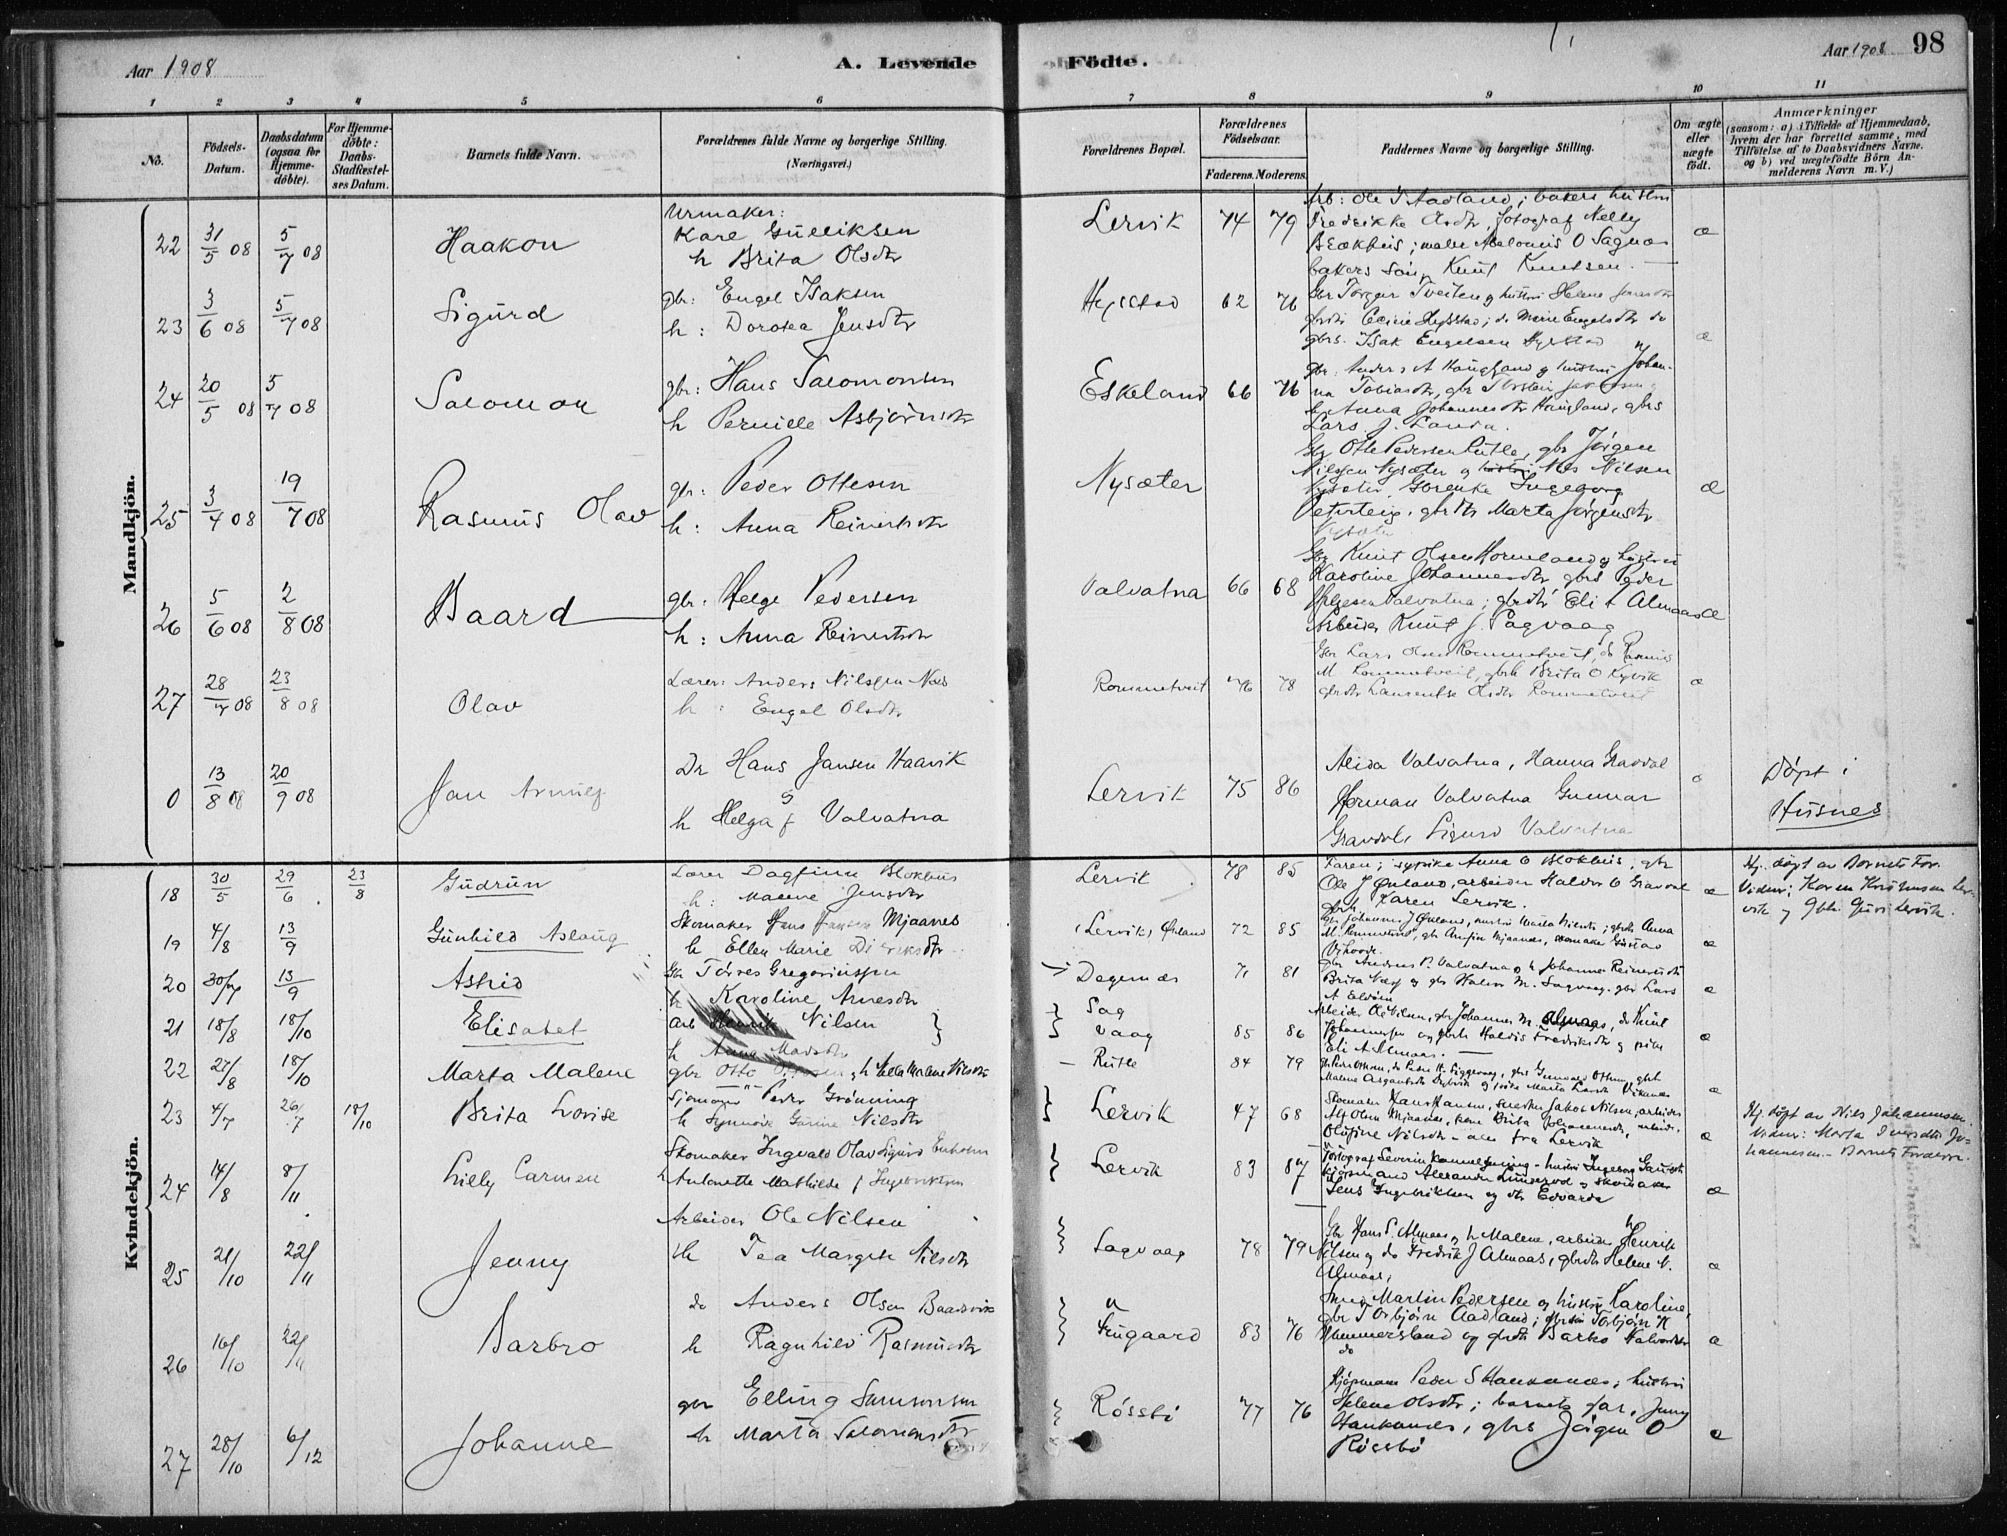 Aar 1908
A. Levende Födte.
Aar 1908 98
1 2 3 4 5 6 7 8 9 10 11
No.
Födsels-Datum.
Daabsdatum (ogsaa for Hjemme-döbte).
For Hjemme-döbte: Daabs-Stadfæstel-ses Datum.
Barnets fulde Navn.
Forældrenes fulde Navne og borgerlige Stilling.
(Næringsvei.)
Forældrenes Bopæl.
Forældrenes Födselsaar.
Faderens. Moderens.
Faddernes Navne og borgerlige Stilling.
Om ægte eller uægte födt.
Anmærkninger
(saasom: a) i Tilfælde af Hjemmedaab, hvem der har forrettet samme, med Tilföielse af to Daabsvidners Navne. og b) ved uægtefödte Börn An-melderens Navn m. V.)
Mandkjön.
22 31/5 08 5/7 08 Haakon
Urmaker:
Karl Gulliksen
h Brita Olsdtr
Lervik 74 79
Arb: Ole T Aadland; bakers hustru
Fredrikke Olsdtr, fotograf Nelly
Blokhus; maler Abelonius O Sagnæs
bakers søn, Knut Knutsen.
æ
23 3/6 08 5/7 08 Sigurd
gbr: Engel Isaksen
h: Dorotea Jensdtr
Hysstad 62 76
Gbr Torgeir Tveiten og hustru Helene Jensdtr
gbrdtr Marie Engelsdtr do
gbrs. Isak Engelsen Hysstad
æ
24 20/5 08 5/7 08 Salomon
gbr: Hans Salomonsen
h Pernille Asbjørnsdtr
Eskeland 66 76
gbr: Anders A Haugland og hustru Johan-
na Tobiasdtr, gbr Torstein
h. Anna Johannesdtr Haugland, gbrs
Lars J. Landa.
25 3/4 08 19/7 08 Rasmus Olav
gbr: Peder Ottesen
h: Anna Reinertsdtr
Nysæter
Gbr Otte Pedersen Rutle, gbr Jørgen
Nilssen Nysæter og Nils Nilsen
Nysæter Ingeborg
gbrdtr Marta Jørgensdtr
Nysæter
æ
26 5/6 08 2/8 08 Baard
gbr. Helge Pedersen
h: Anna Reinertsdtr
Valvatna 66 68
Gbr Knut Olsen Horneland og hustru
Karoline Johannesdtr gbrs Peder
Helgesen Valvatna; gbrdtr Eli A Almaas
Arbeider Knut J. Sagvaag
æ
27 28/7 08 23/8 08 Olav
Lærer: Anders Nilssen Næs
h: Engel Olsdtr
Rommetveit 76 78
Gbr Lars Olsen Rommetveit, do Rasmus
M Rommetveit, gbrh Brita O Kyvik
gbrdtr Laurentse Olsdtr Rommetveit
æ
0 13/8 08 20/9 08 Jan Arnulf
Dr Hans Jansen Haavik
h Helga f Valvatna
Lervik 75 86
Alida Valvatna, Hanna Gravdal
Herman Valvatna Gunnar
Gravdal, Sigurd Valvatna
Døpt i
Husnes
Kvindekjön.
18 30/5 29/6 23/8 Gudrun
Lærer Dagfinn Blokhus
h: Malene Jensdtr
Lervik 78 85
Faren; sypike Anna O Blokhus, gbr
Ole J Ønland, arbeider Halvor O Gravdal
gbrh Karen Lervik.
æ
Hj. døpt av Barnets Far.
Vidner: Karen Kristensen Ler-
vik og Gbh. Guri Lervik.
19 4/8 13/9 Gunhild Aslaug
Skomaker Hans Jansen Mjaanes
h Ellen Marie Diriksdtr
(Lervik) Ønland 72 85
gbr Johannes J Ønland, hustru Marta Nilsdtr; gbrdtr Anna
M. Rommetveit, gbr Arnfin Mjaanes, skomaker Gustav
Vihovde
æ
20 30/7 13/9 Astrid
Gbr Tørres Gregoriussen
h Karoline Arnesdtr
Dagenæs 71 81
gbr Andreas P. Valvatna og h Johanne Reinertsdtr
Brita Næss og gbr Halvor M. Sagvaag. gbr Lars
A Eldøen
æ
21 18/8 18/10 Elisabet
Arb Henrik Nilsen
h Anna Madsdtr
Sag
vaag 85 86
Arbeider Ole Nilsen, gbr Johannes M. Almaas, do Knut
Johannessen og gbrh Haldis Fredriksdtr og pike
Eli A Almaas.
æ
22 27/8 18/10 Marta Malene
gbr Otto Ottesen, h Lella Malene Nilsdtr
Rutle 84 79
æ
23 4/7 26/7 18/10 Brita Lovise
Sjømann Peder Grønning
h Synnøve Gurine Nilsdtr
Lervik 47 68
Skomaker Hans Hansen, snedker Jakob Nilsen, arbeider
Alf Olsen Mjaanes, kone Brita Johannesdtr, arbeid.
Olufine Nilsdtr - alle fra Lervik
æ
Hj. døpt av Nils Johannesen.
Vidner: Marta Iversdtr Jo-
hannesen. - Barnets Forældre.
24 14/8 8/11 Lilly Carmen
Skomaker Ingvald Olav Sigurd Enholm
h Antonette Mathilde f Ingebriktsen
Lervik 83 87
Fotograf Severin Rommetveit - hustru Ingeborg
kjøpmand Alexander Lunderød og skomaker
Jens Ingebriktsen og dtr Edvarda
æ
25 21/10 22/11 Jenny
Arbeider Ole Nilsen
h Tea Margrete Nilsdtr
Sagvaag 78 79
Gbr Hans S. Almaas og h Malene, arbeider Henrik
Nilsen og do Fredrik J Almaas, gbrdtr Helene N.
Almaas,
æ
26 16/10 22/11 Barbro
do Anders Olsen Baardsvik
h Ragnhild Rasmusdtr
Frugaard 83 76
Smed Martin Pedersen og hustru Karoline,
gbr Torbjørn Aadland; Torbjørn K
Hummersland og gbrdtr Barbro Halvorsdtr
do
æ
27 28/10 6/12 Johanne
gbr Elling Samsonsen
h Marta Salomonsdtr
Røssbø 77 76
Kjøpmann Peder S Haukanæs; hustru
Helene Olsdtr; barnets far, Jenny
Haukanæs, gbrs Jørgen O
Røssbø
æ